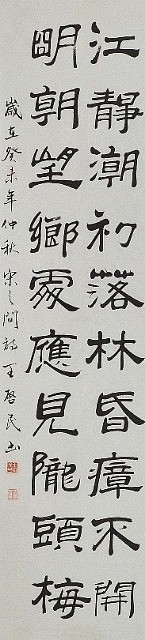 江靜潮初落林昏瘴不開
明朝望鄉處應見隴頭梅
歲在癸未年仲秋宋之問詩王啓民書